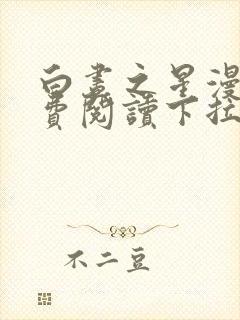 白晝之星漫
費閱讀下拉
不二豆